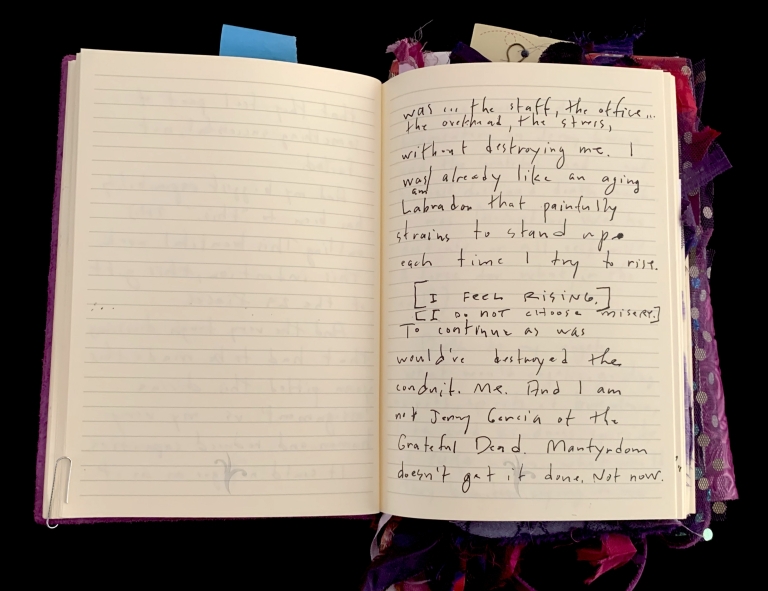 was ... the staff, the office...
the overhead, the stress,
without destroying me. I
was/ already like an aging
am
Labrador that painfully
strains to stand up
each time I try to rise.
[I FEEL RISING.]
[I DO NOT CHOOSE MISERY.]
To continue as was
would've destroyed the
conduit. Me. And I am
not Jerry Garcia of the
Grateful Dead. Martyrdom
doesn't get it done. Not now.